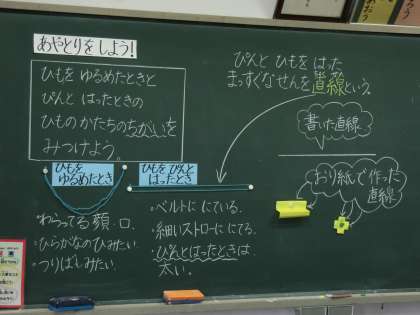 あやとりをしよう!
ひもを ゆるめたときと
ぴんと はったときの
ひもの かたちのちがいを
みつけよう。
ひもを
ゆるめたとき
ひもを ぴんと
はったとき
・わらってる顔・口
・ひらがなのひみたい
・つりばしみたい
・ベルトに にている。
・細いストローに にてる
・ぴんとはったときは
太い。
ぴんと ひもを はった
まっすぐなせんを直線という。
書いた直線
おり紙で作った
直線